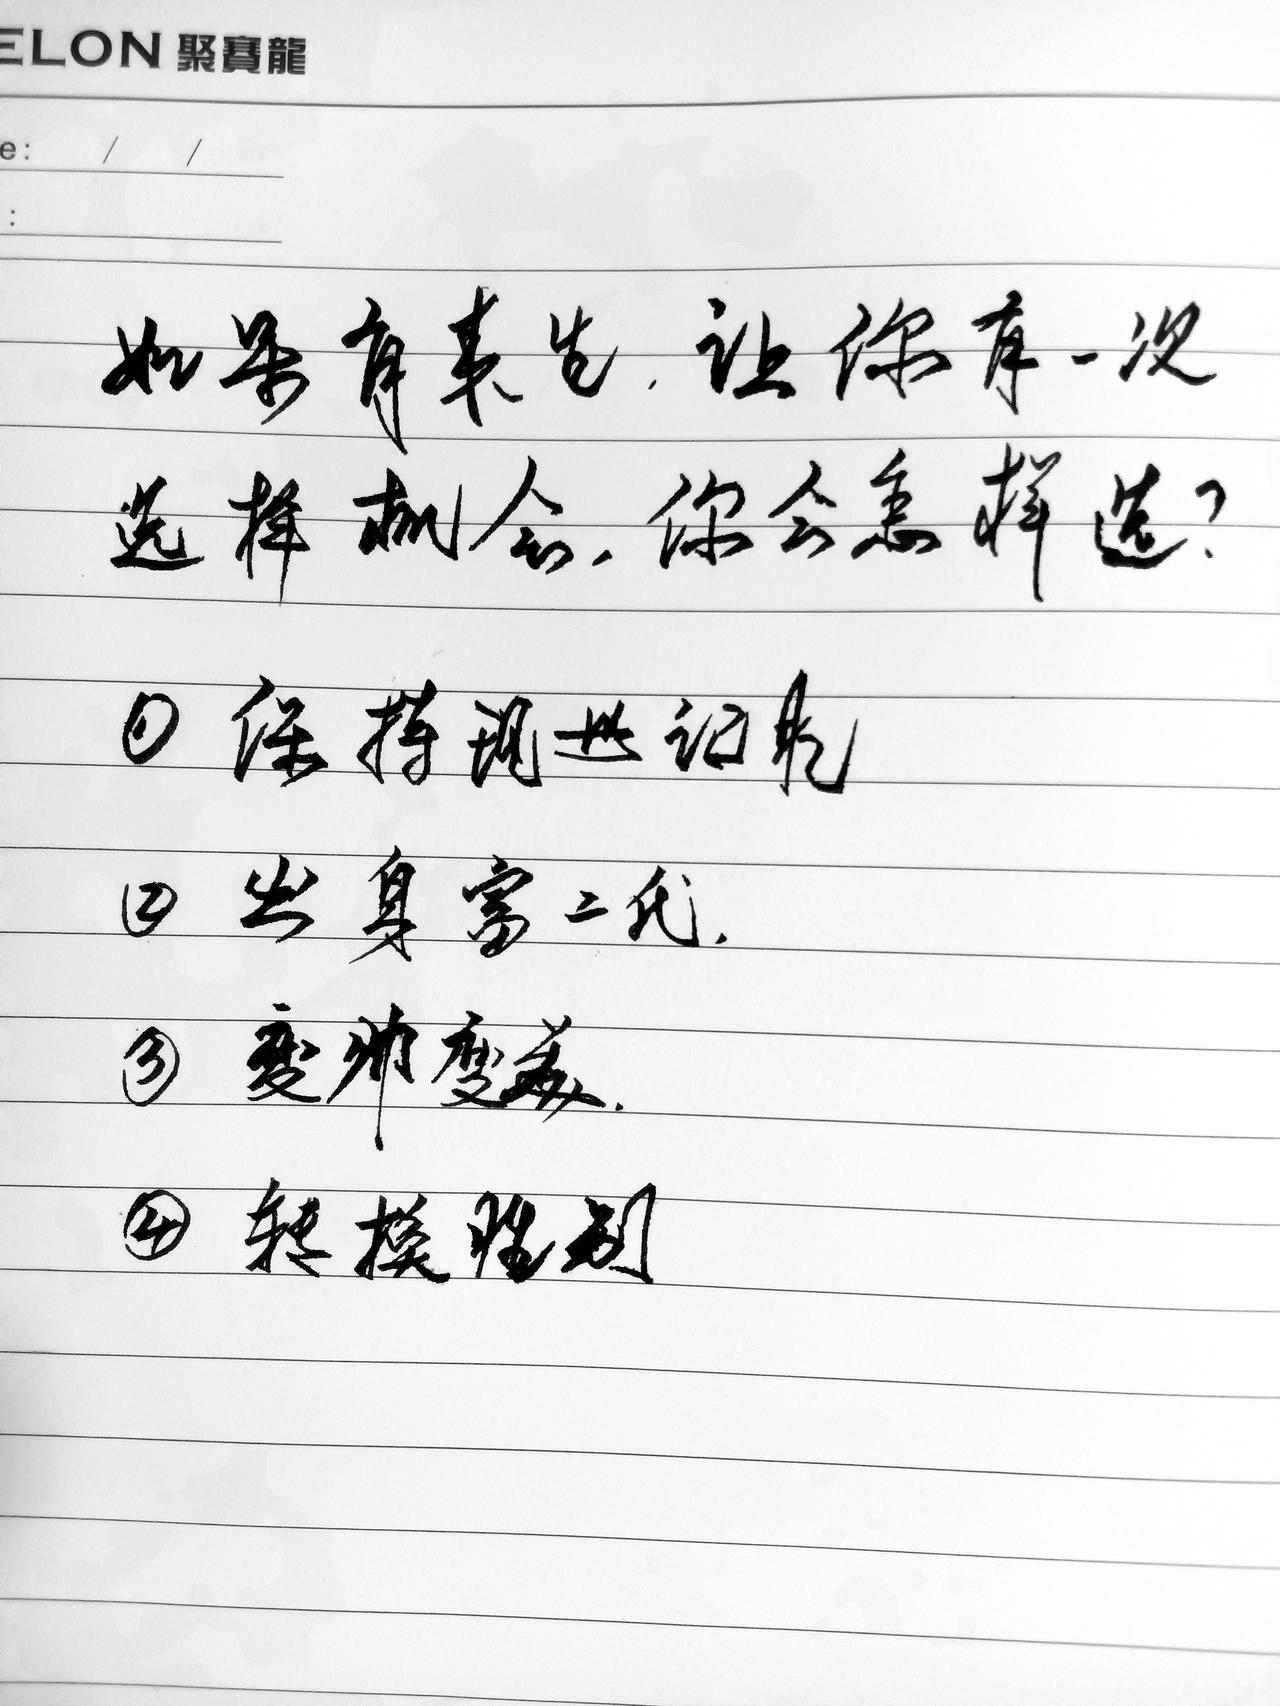 ELON 聚賽龍
e: / /
:
如果有来生,让你有一次
选择机会,你会怎样选?
① 保持现世记忆
② 出身富二代.
③ 变帅变美.
④ 转换性别